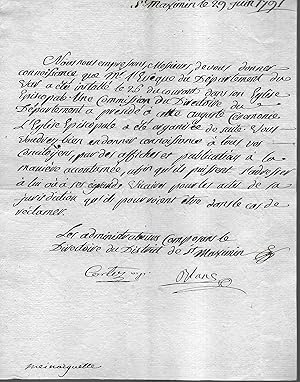 St Maximin le 29 juin 1791
Nous nous empressons, Messieurs de vous donner
connoissance que Mr l'Eveque du Département du
Var a été installé le 26 du courant dans son Eglise
Episcopale. Une Commission du Directoire du
Département a présidé à cette auguste Ceremonie
L'Eglise Episcopale a été organisée de suite. Vous
voudrez bien en donner connoissance à tous vos
Concitoyens, par des affiches et publication à la
manière accoutumée, afin qu'ils puissent s'adresser
à lui ou à ses Vicaires pour les actes de sa
jurisdiction qu'ils pourroient être dans le cas de
reclamer.
Les administrateurs Composant le
Directoire du District de St Maximin